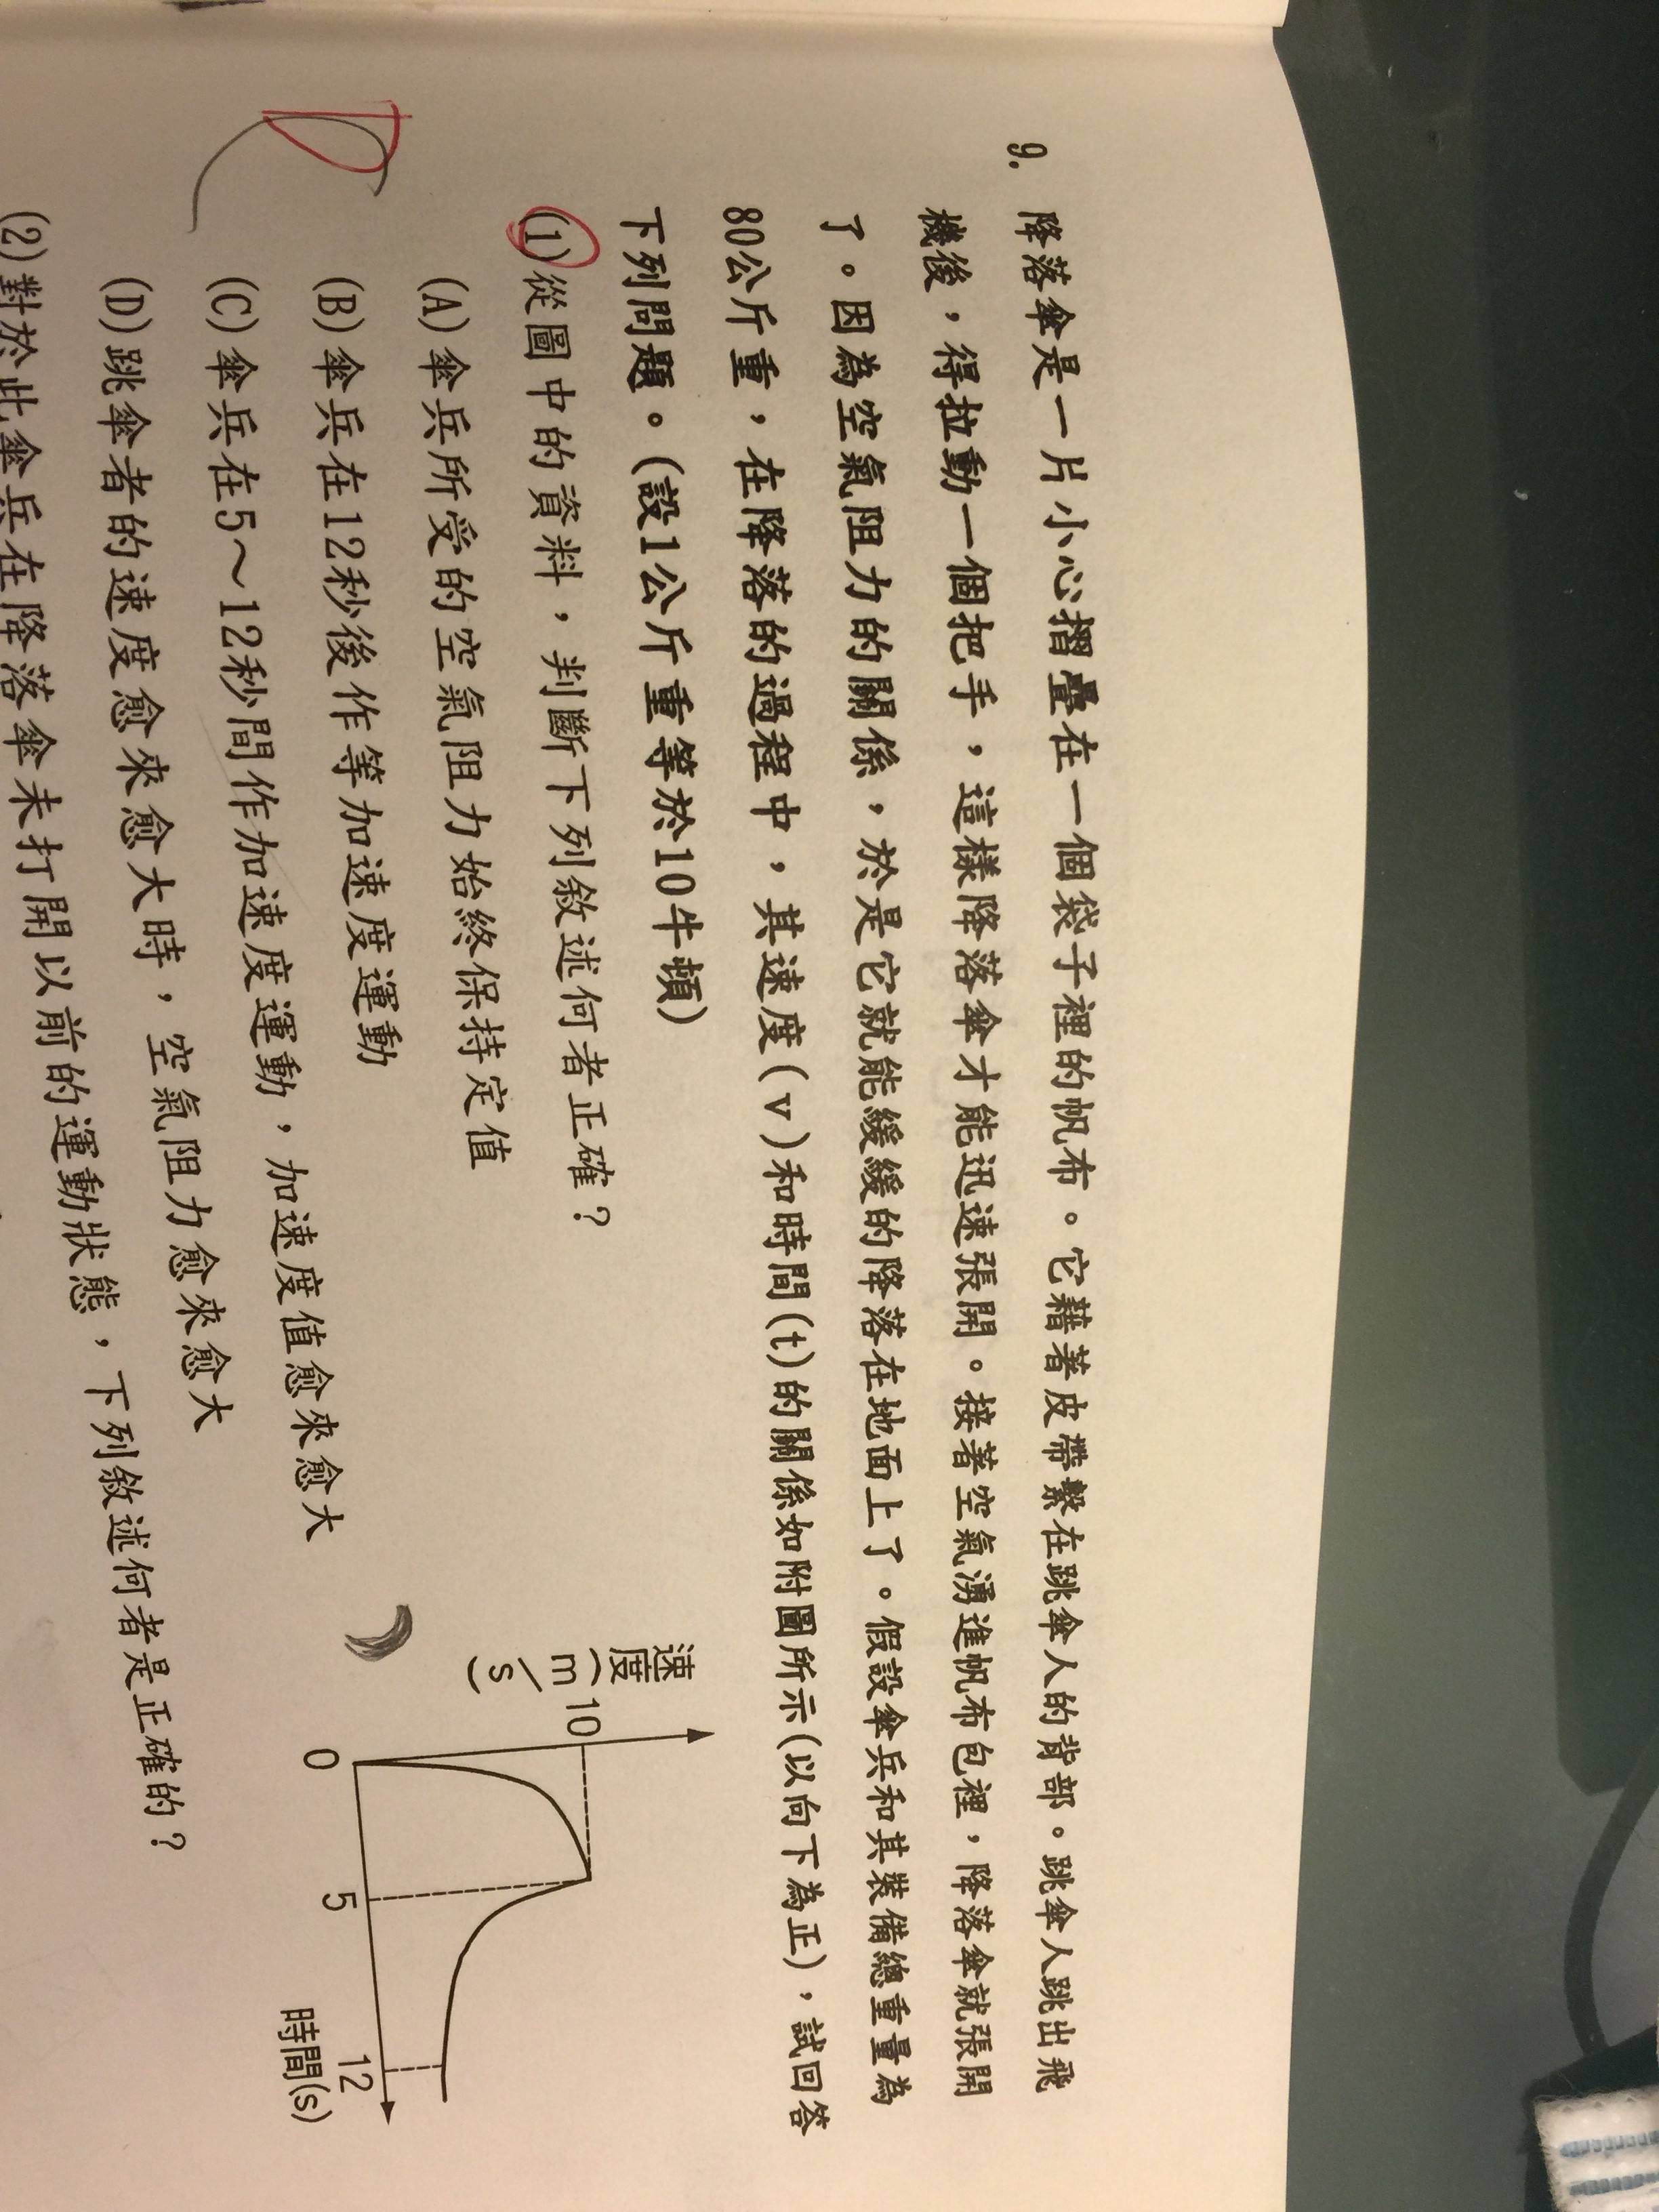 9. 降落傘是一片小心摺疊在一個袋子裡的帆布。它藉著皮帶繫在跳傘人的背部。跳傘人跳出飛
機後，得拉動一個把手，這樣降落傘才能迅速張開。接著空氣湧進帆布包裡，降落傘就張開
了。因為空氣阻力的關係，於是它就能緩緩的降落在地面上了。假設傘兵和其裝備總重量為
80公斤重，在降落的過程中，其速度(v)和時間(t)的關係如附圖所示(以向下為正)，試回答
下列問題。(設1公斤重等於10牛頓)
(1)從圖中的資料，判斷下列敘述何者正確？
(A)傘兵所受的空氣阻力始終保持定值
(B)傘兵在12秒後作等加速度運動
(C)傘兵在5～12秒間作加速度運動，加速度值愈來愈大
(D)跳傘者的速度愈來愈大時，空氣阻力愈來愈大
速度(m/s)
10
0
5
12
時間(s)
(2)對於此傘兵在降落傘未打開以前的運動狀態，下列敘述何者是正確的？